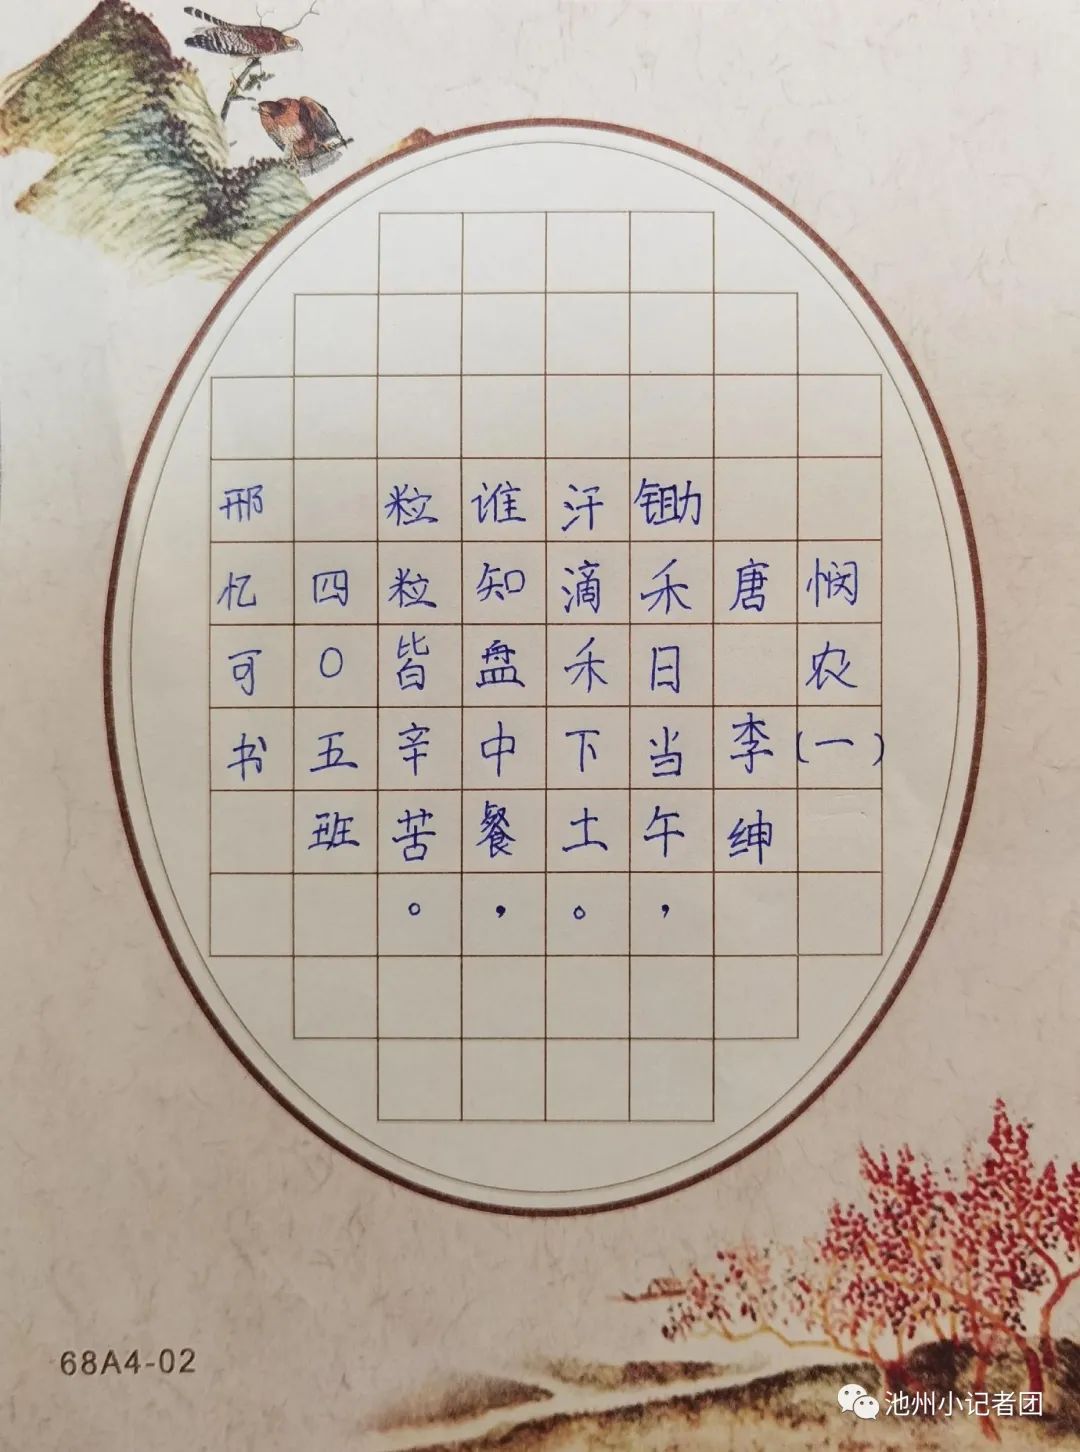 悯农(一)
唐 李绅
锄禾日当午，
汗滴禾下土。
谁知盘中餐，
粒粒皆辛苦。
四〇五班
邢忆可书
68A4-02
池州小记者团